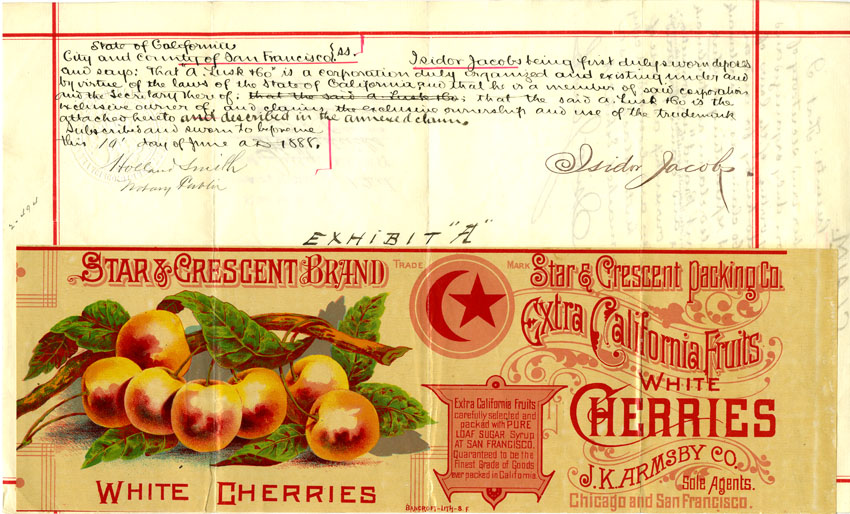 State of California
City and County of San Francisco } ss. Isidor Jacobs being first duly sworn deposes
and says: That A. Lusk & Co is a corporation duly organized and existing under and
by virtue of the laws of the State of California, and that he is a member of said corporation
and the Secretary thereof; that the said A Lusk & Co; that the said A. Lusk & Co is the
exclusive owner of and claims the exclusive ownership and use of the trademark
attached hereto and described in the annexed claim.
Subscribed and sworn to before me
this 19th day of June A.D. 1888.
Holland Smith
Notary Public
Isidor Jacobs
EXHIBIT "A"
STAR & CRESCENT BRAND
TRADE MARK
Star & Crescent Packing Co.
Extra California Fruits
WHITE
CHERRIES
J.K. ARMSBY CO.
Sole Agents.
Chicago and San Francisco.
Extra California Fruits
carefully selected and
packed with PURE
LOAF SUGAR Syrup
AT SAN FRANCISCO.
Guaranteed to be the
Finest Grade of Goods
ever packed in California
WHITE CHERRIES
BANCROFT-LITH-S.F.